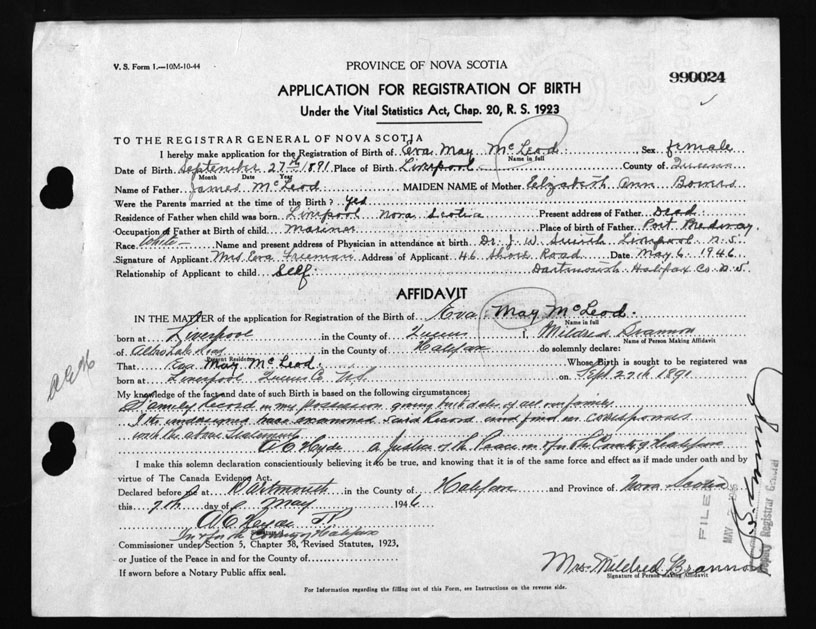 V. S. Form 1.—10M-10-44
PROVINCE OF NOVA SCOTIA
990024
APPLICATION FOR REGISTRATION OF BIRTH
Under the Vital Statistics Act, Chap. 20, R. S. 1923
TO THE REGISTRAR GENERAL OF NOVA SCOTIA
I hereby make application for the Registration of Birth of Eva May McLeod Sex female
Name in full
Date of Birth September 27th 1891 Place of Birth Liverpool County of Queens
Month Date Year
Name of Father James McLeod MAIDEN NAME of Mother Elizabeth Ann Bowers
Were the Parents married at the time of the Birth? yes
Residence of Father when child was born Liverpool Nova Scotia Present address of Father Dead
Occupation of Father at Birth of child Mariner Place of birth of Father Port Medway
Race White Name and present address of Physician in attendance at birth Dr. J. W. Smith Liverpool N.S.
Signature of Applicant Mrs Eva Freeman Address of Applicant 46 Shore Road Date May 6 1946
Relationship of Applicant to child Self. Dartmouth Halifax Co N.S.
AFFIDAVIT
IN THE MATTER of the application for Registration of the Birth of Eva May McLeod
Name in full
born at Liverpool in the County of Queens I, Mildred Brannon
Name of Person Making Affidavit
of Lake Road in the County of Halifax do solemnly declare:
Present Residence
That Eva May McLeod. Whose Birth is sought to be registered was
born at Liverpool Queens Co N.S. on Sept 27th 1891
My knowledge of the fact and date of such Birth is based on the following circumstances:
Family Record in my possession giving birth dates of all our family.
I the undersigned have examined said Record and find it corresponds
with the above Statement
A C Hyde A Justice of the Peace in & for the County of Halifax
I make this solemn declaration conscientiously believing it to be true, and knowing that it is of the same force and effect as if made under oath and by
virtue of The Canada Evidence Act.
Declared before me at Dartmouth in the County of Halifax and Province of Nova Scotia
this 7th day of May 1946
A C Hyde JP
In & for the County of Halifax
Commissioner under Section 5, Chapter 38, Revised Statutes, 1923,
or Justice of the Peace in and for the County of
If sworn before a Notary Public affix seal.
Mrs. Mildred Brannon
Signature of Person Making Affidavit
For Information regarding the filling out of this Form, see Instructions on the reverse side.
FILED
MAY
Deputy Registrar General